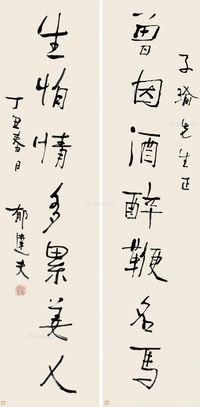 子瑜先生正
曾因酒醉鞭名馬
生怕情多累美人
丁丑春日
郁達夫